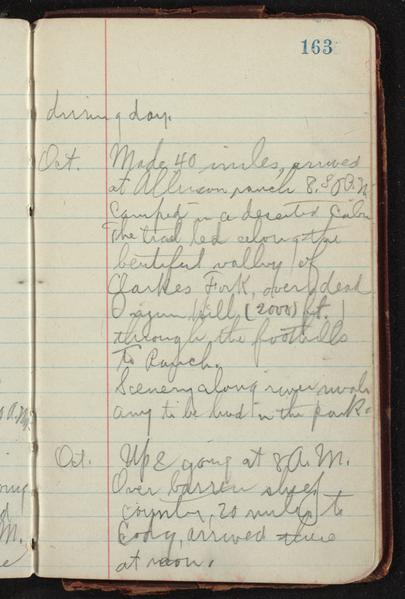 163
during day.
Oct. Made 40 miles, arrived
at ranch 8.30 P.M.
Camped in a deserted Cabin
The trail led along the
beutiful valley of
Clarkes Fork, over dead
hill (2000) ft.
through the foothills
To Ranch.
Scenery along river rivals
any to be had in the park.
Oct. Up & going at 8 A.M.
Over barren sheep
country, 20 miles to
Cody, arrived there
at noon.